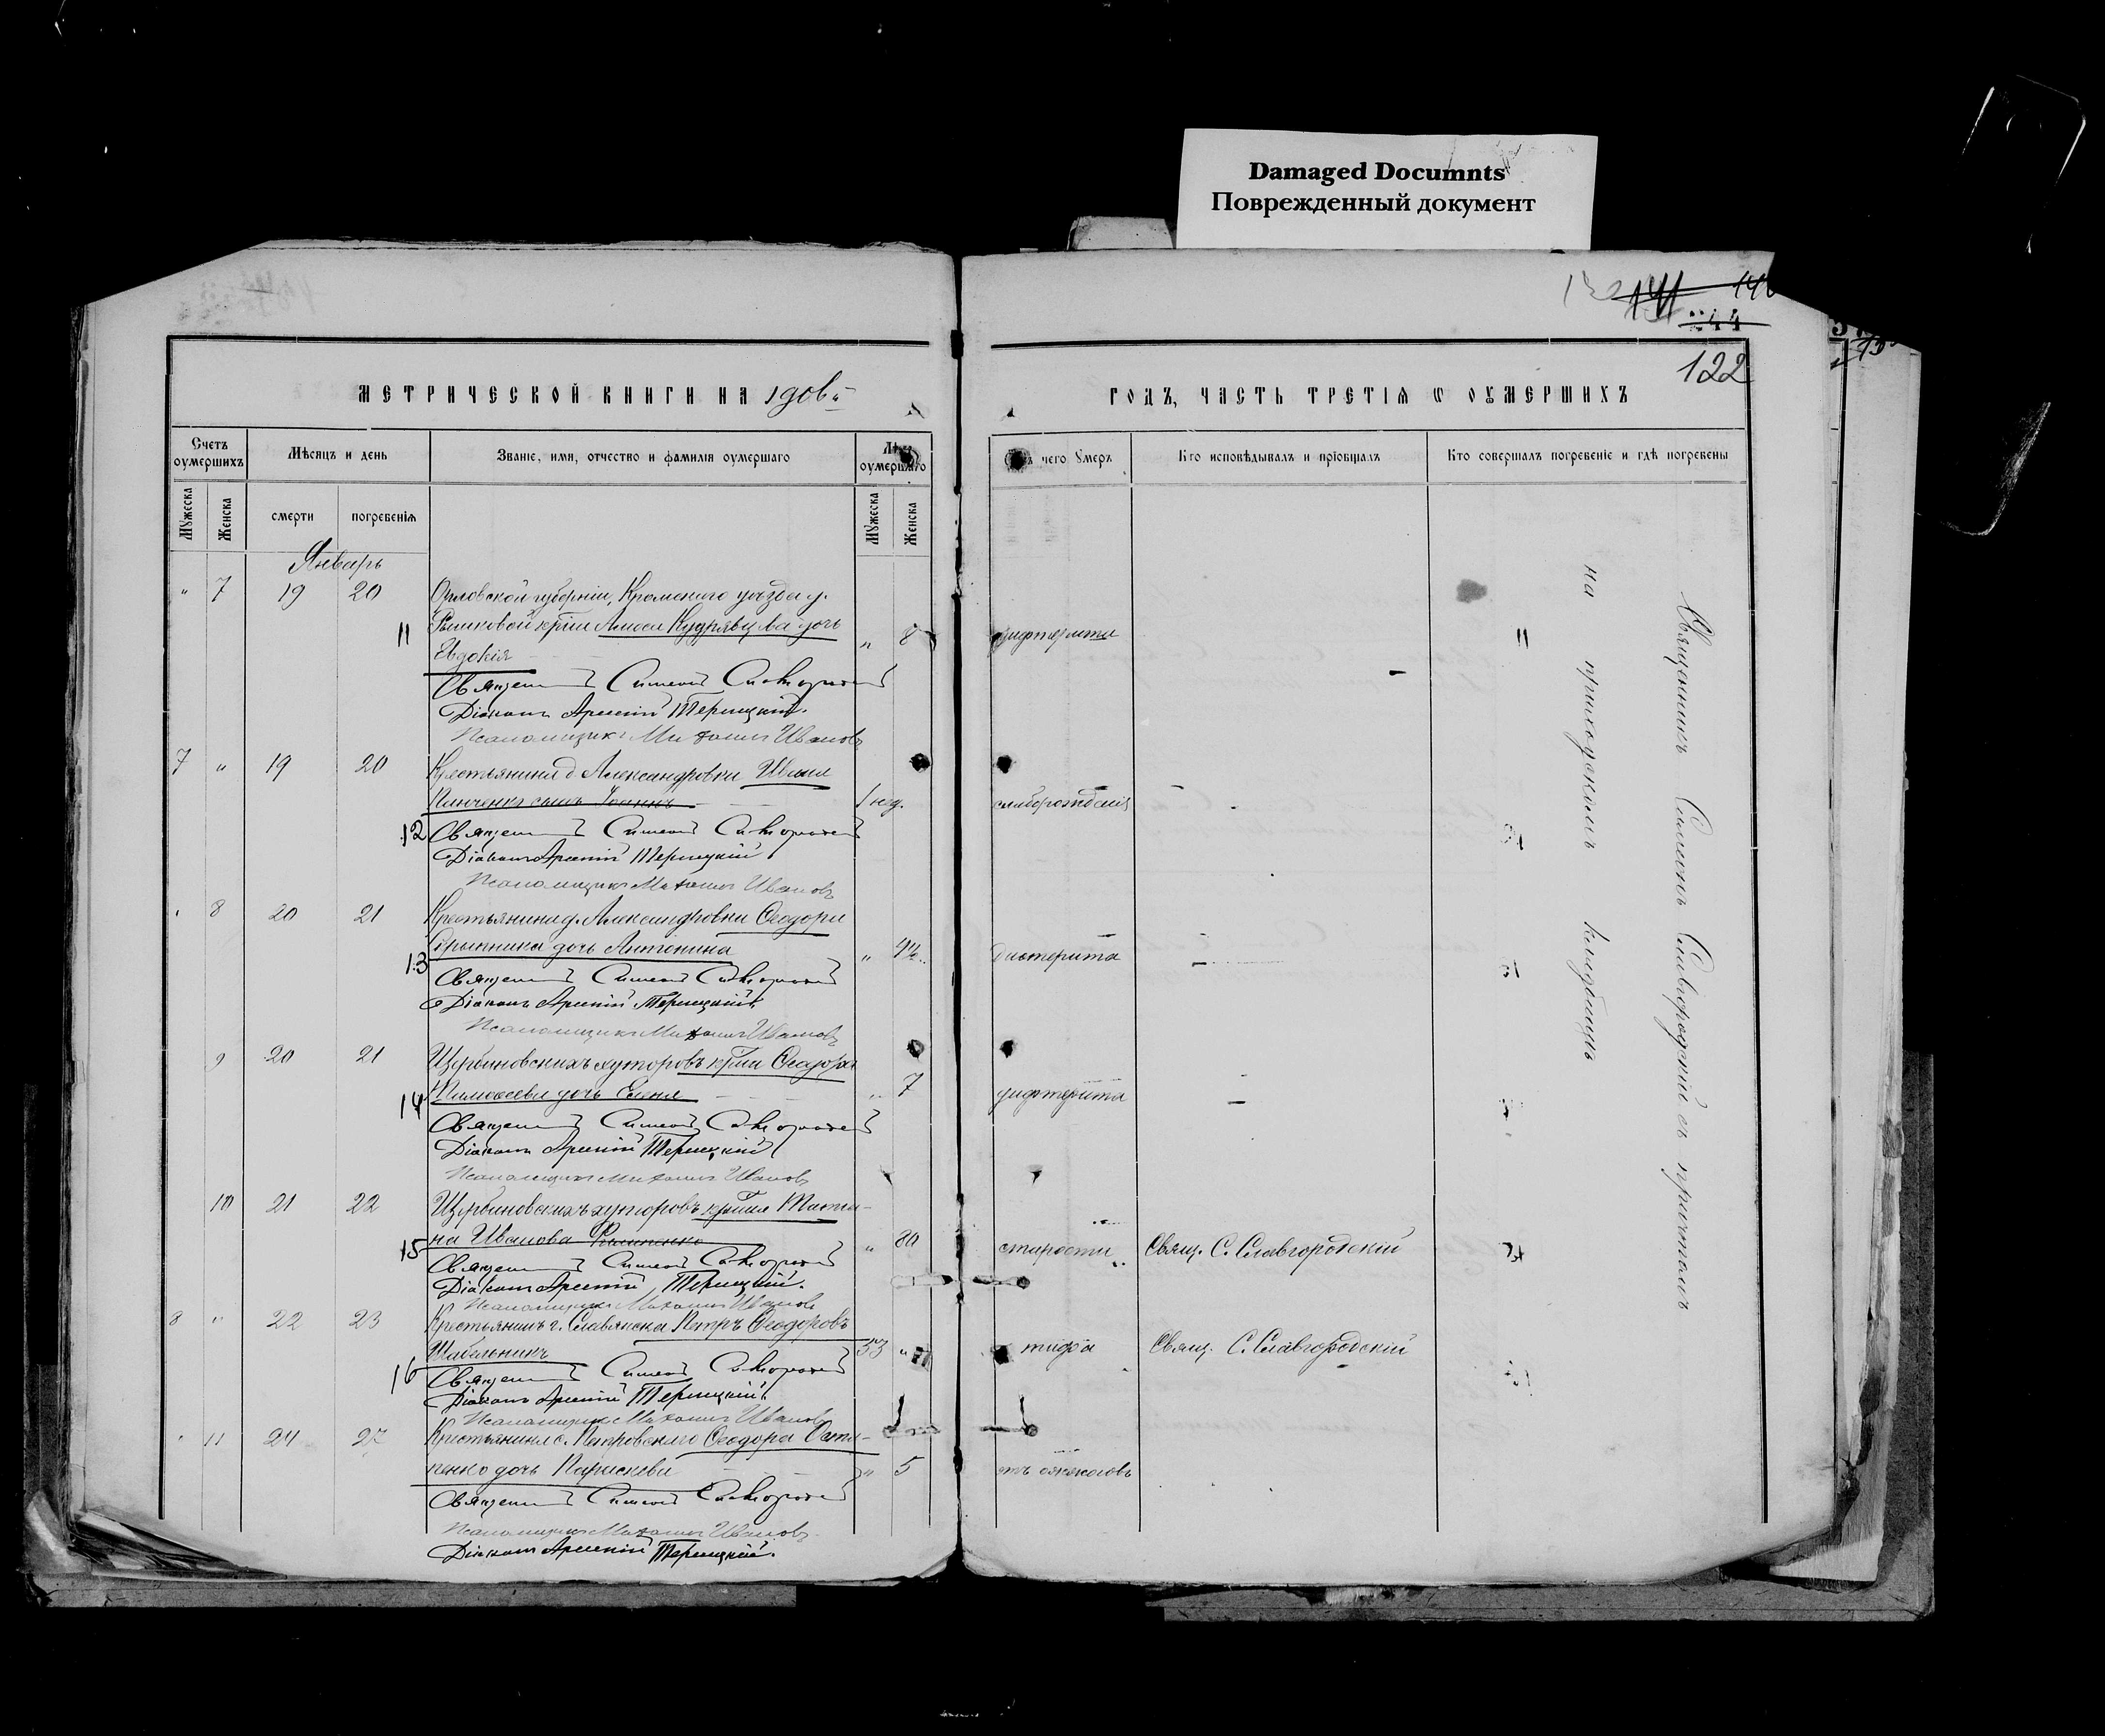 Damaged Documnts
Поврежденный документ
122
МЕТРИЧЕСКОЙ КНИГИ НА 1906й
ГОДЪ, ЧАСТЬ ТРЕТІѦ Ѡ ОУМЕРШИХЪ
Счетъ оумершихъ
Мѣсяцъ и день
Званіе, имя, отчество и фамилія оумершаго
Лѣта оумершаго
чего умеръ
Кто исповѣдывалъ и пріобщалъ
Кто совершалъ погребеніе и гдѣ погребены
Мужеска
Женска
смерти
погребенія
Мужеска
Женска
Январь
" 7 19 20 Орловской губерніи, Кромскаго уѣзда д.
11 кр–на Амоса Кудрявцева дочь " 8 дифтерита
Евдокія
Священникъ Симеонъ Славгородскій
Діаконъ Арсеній Терлецкій.
Псаломщикъ Михаилъ Ивановъ
7 " 19 20 Крестьянина д. Александровки Ивана
Панченко сынъ Іоаннъ 1 нед. слаборожденія
12 Священникъ Симеонъ Славгородскій
Діаконъ Арсеній Терлецкій
Псаломщикъ Михаилъ Ивановъ
8 20 21 Крестьянина д. Александровки Ѳеодора
дочь Антонина " дифтерита
13 Священникъ Симеонъ Славгородскій
Діаконъ Арсеній Терлецкій
Псаломщикъ Михаилъ Ивановъ
9 20 21 Щербиновскихъ хуторовъ кр–на Ѳеодора
Тимоѳеева дочь " 7 дифтерита
14 Священникъ Симеонъ Славгородскій
Діаконъ Арсеній Терлецкій
Псаломщикъ Михаилъ Ивановъ
10 21 22 Щербиновскихъ хуторовъ
на Иванова " 80 старости Свящ. С. Славгородскій
15 Священникъ Симеонъ Славгородскій
Діаконъ Арсеній Терлецкій.
Псаломщикъ Михаилъ Ивановъ
8 " 22 23 Крестьянинъ г. Славянска Петръ Ѳеодоровъ
Шабельникъ 53 " тифа Свящ. С. Славгородскій
16 Священникъ Симеонъ Славгородскій
Діаконъ Арсеній Терлецкій
Псаломщикъ Михаилъ Ивановъ
11 24 27 Крестьянина с. Петровскаго Ѳеодора Оста-
пенко дочь Параскева " 5 отъ ожоговъ
Священникъ Симеонъ Славгородскій
Псаломщикъ Михаилъ Ивановъ
Діаконъ Арсеній Терлецкій.
Священникъ Симеонъ Славгородскій съ причтомъ
на приходскомъ кладбищѣ